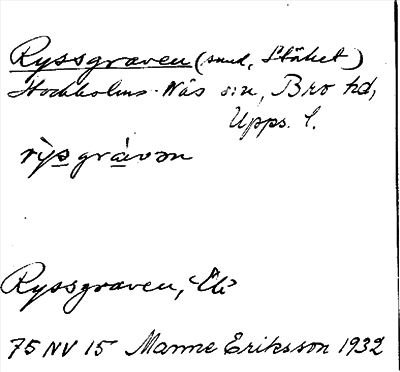 Ryssgraven (sund, Stäket)
Stockholms-Näs sn, Bro hd,
Upps. l.
rỳsgràvən
Ryssgraven,
75 NV 15 Manne Eriksson 1932